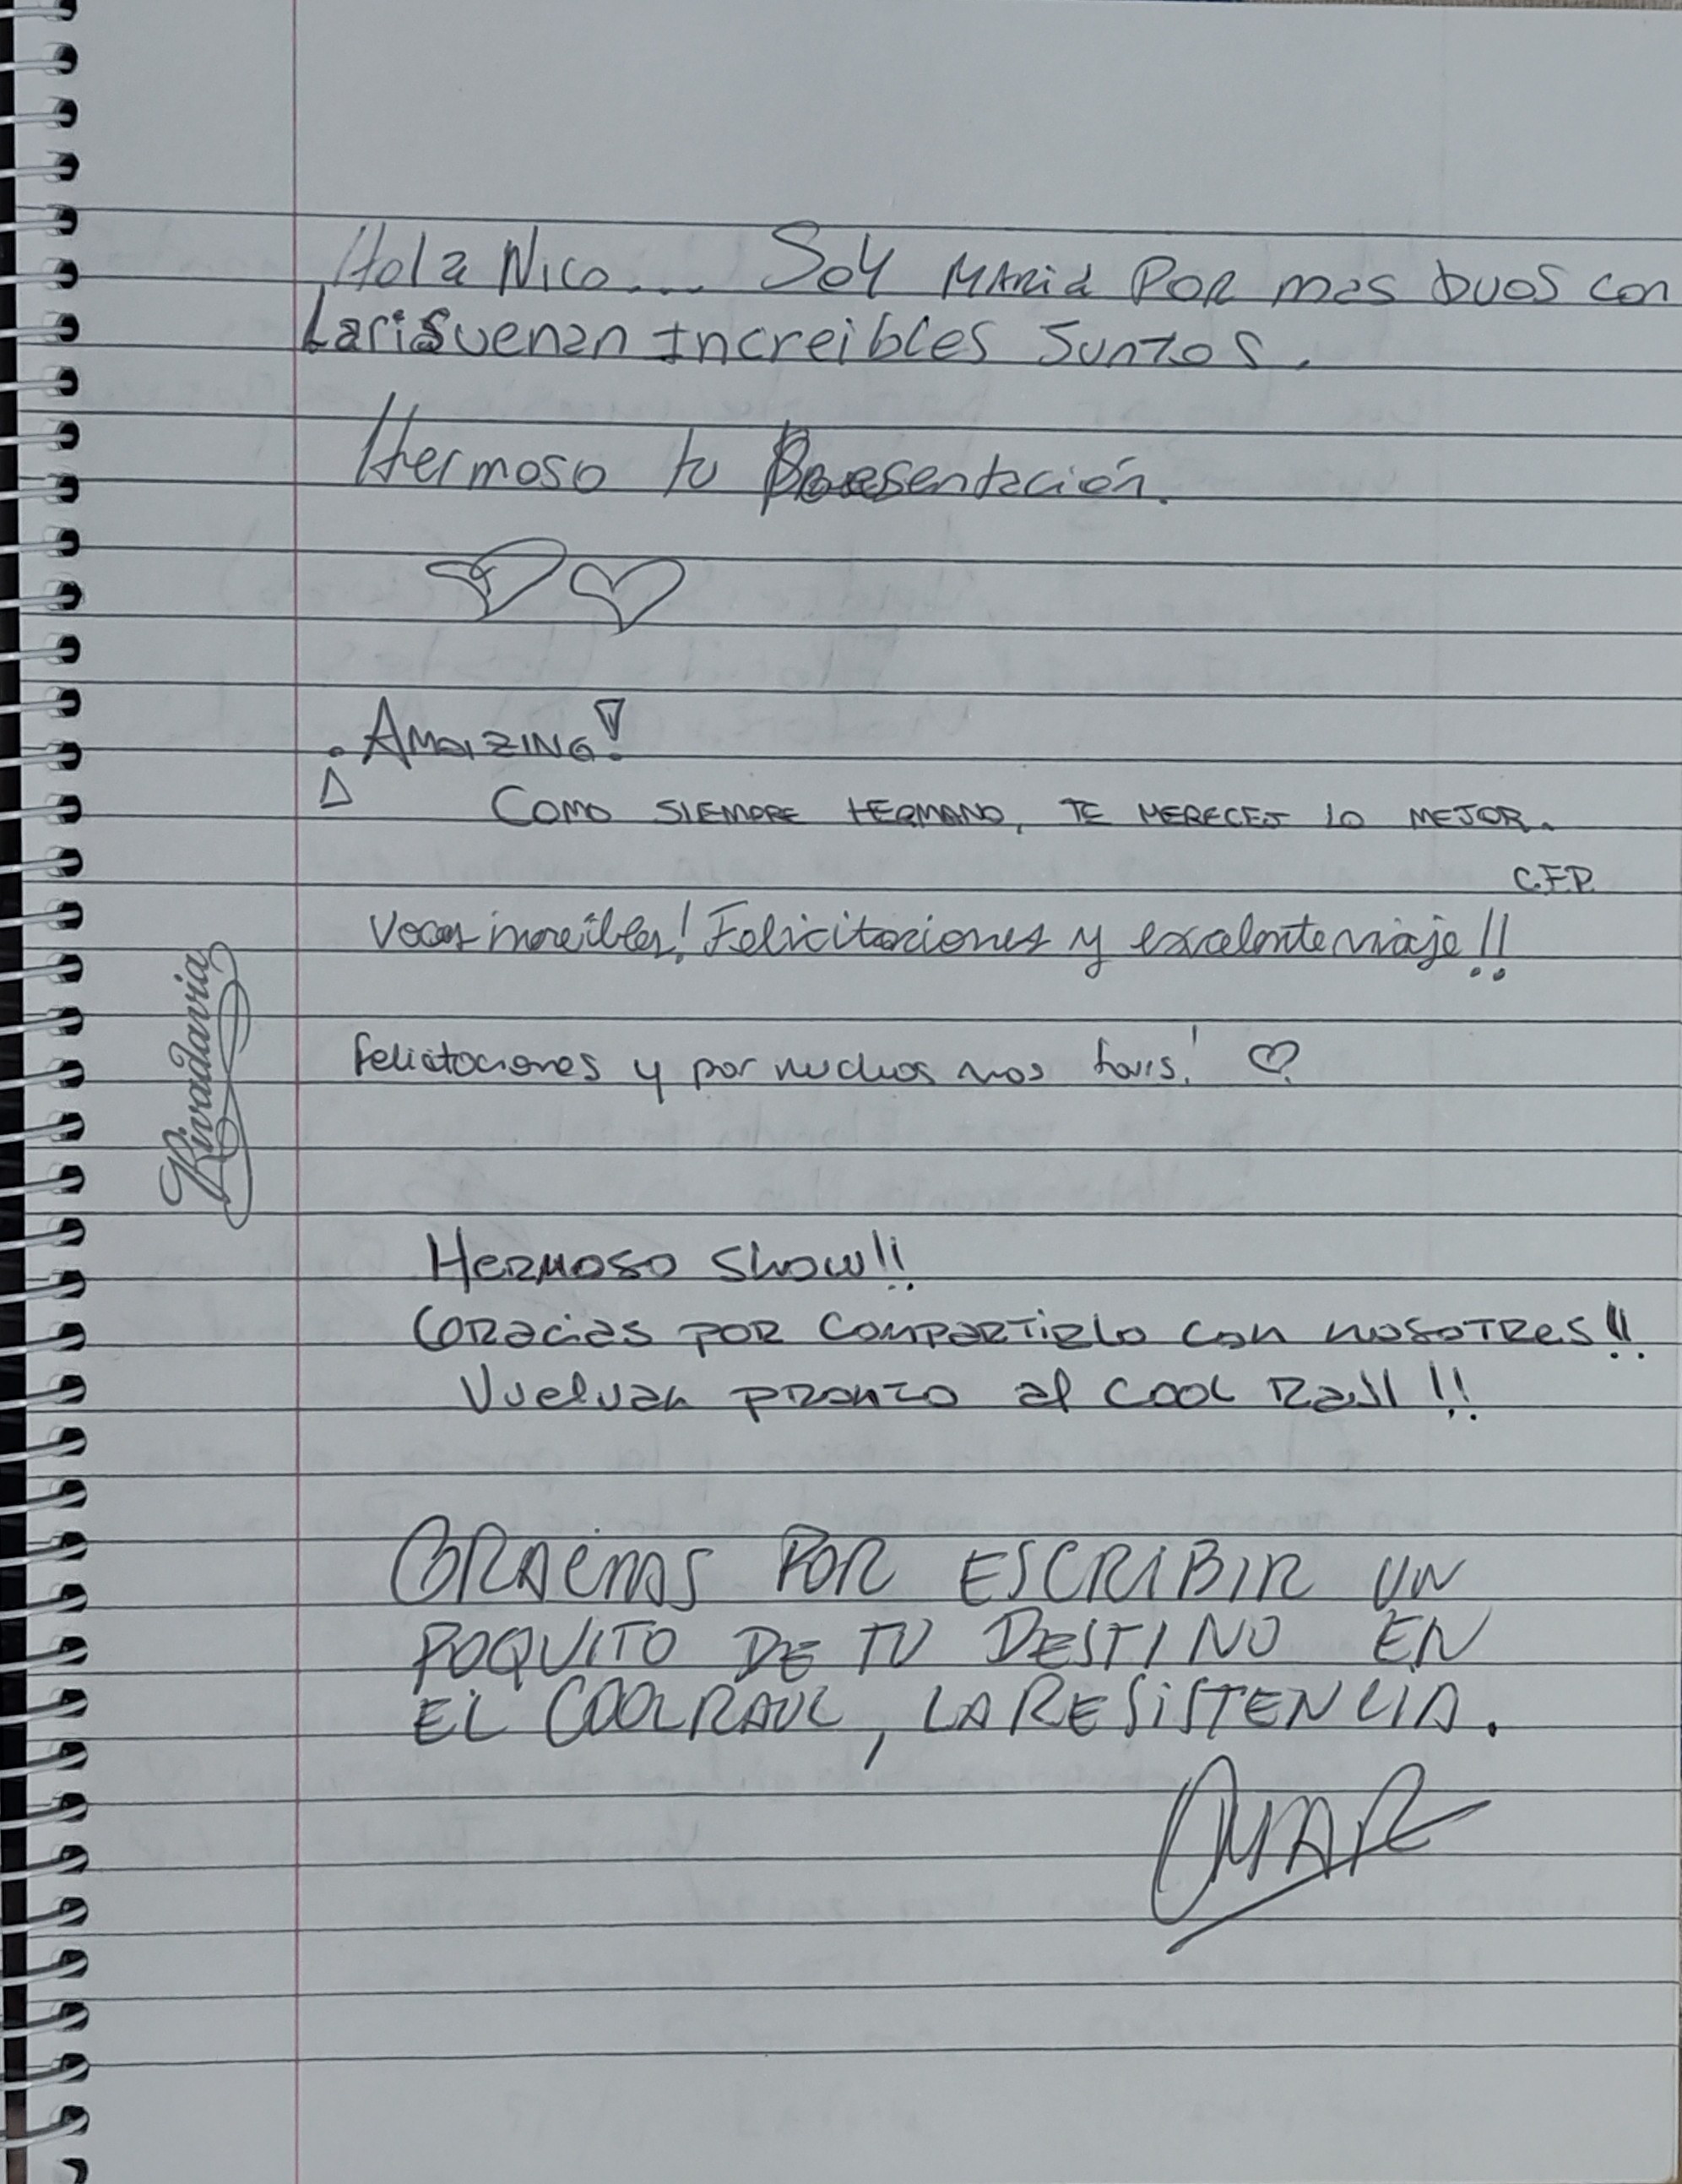 Hola Nico... Soy Maria Por mas Duos con
Lari Suenan Increibles Juntos.
Hermoso tu Presentación.
¡Amaizing!
Como siempre hermano, te mereces lo mejor.
C.F.P.
Voces increíbles! Felicitaciones y excelente viaje!!
Felicitaciones y por muchos mas tours! ♡
Rivadavia
Hermoso show!!
Gracias por compartirlo con nosotres!!
Vuelvan pronto al Cool Raul!!
GRACIAS POR ESCRIBIR UN
POQUITO DE TU DESTINO EN
EL COOLRAUL, LA RESISTENCIA.
OMAR